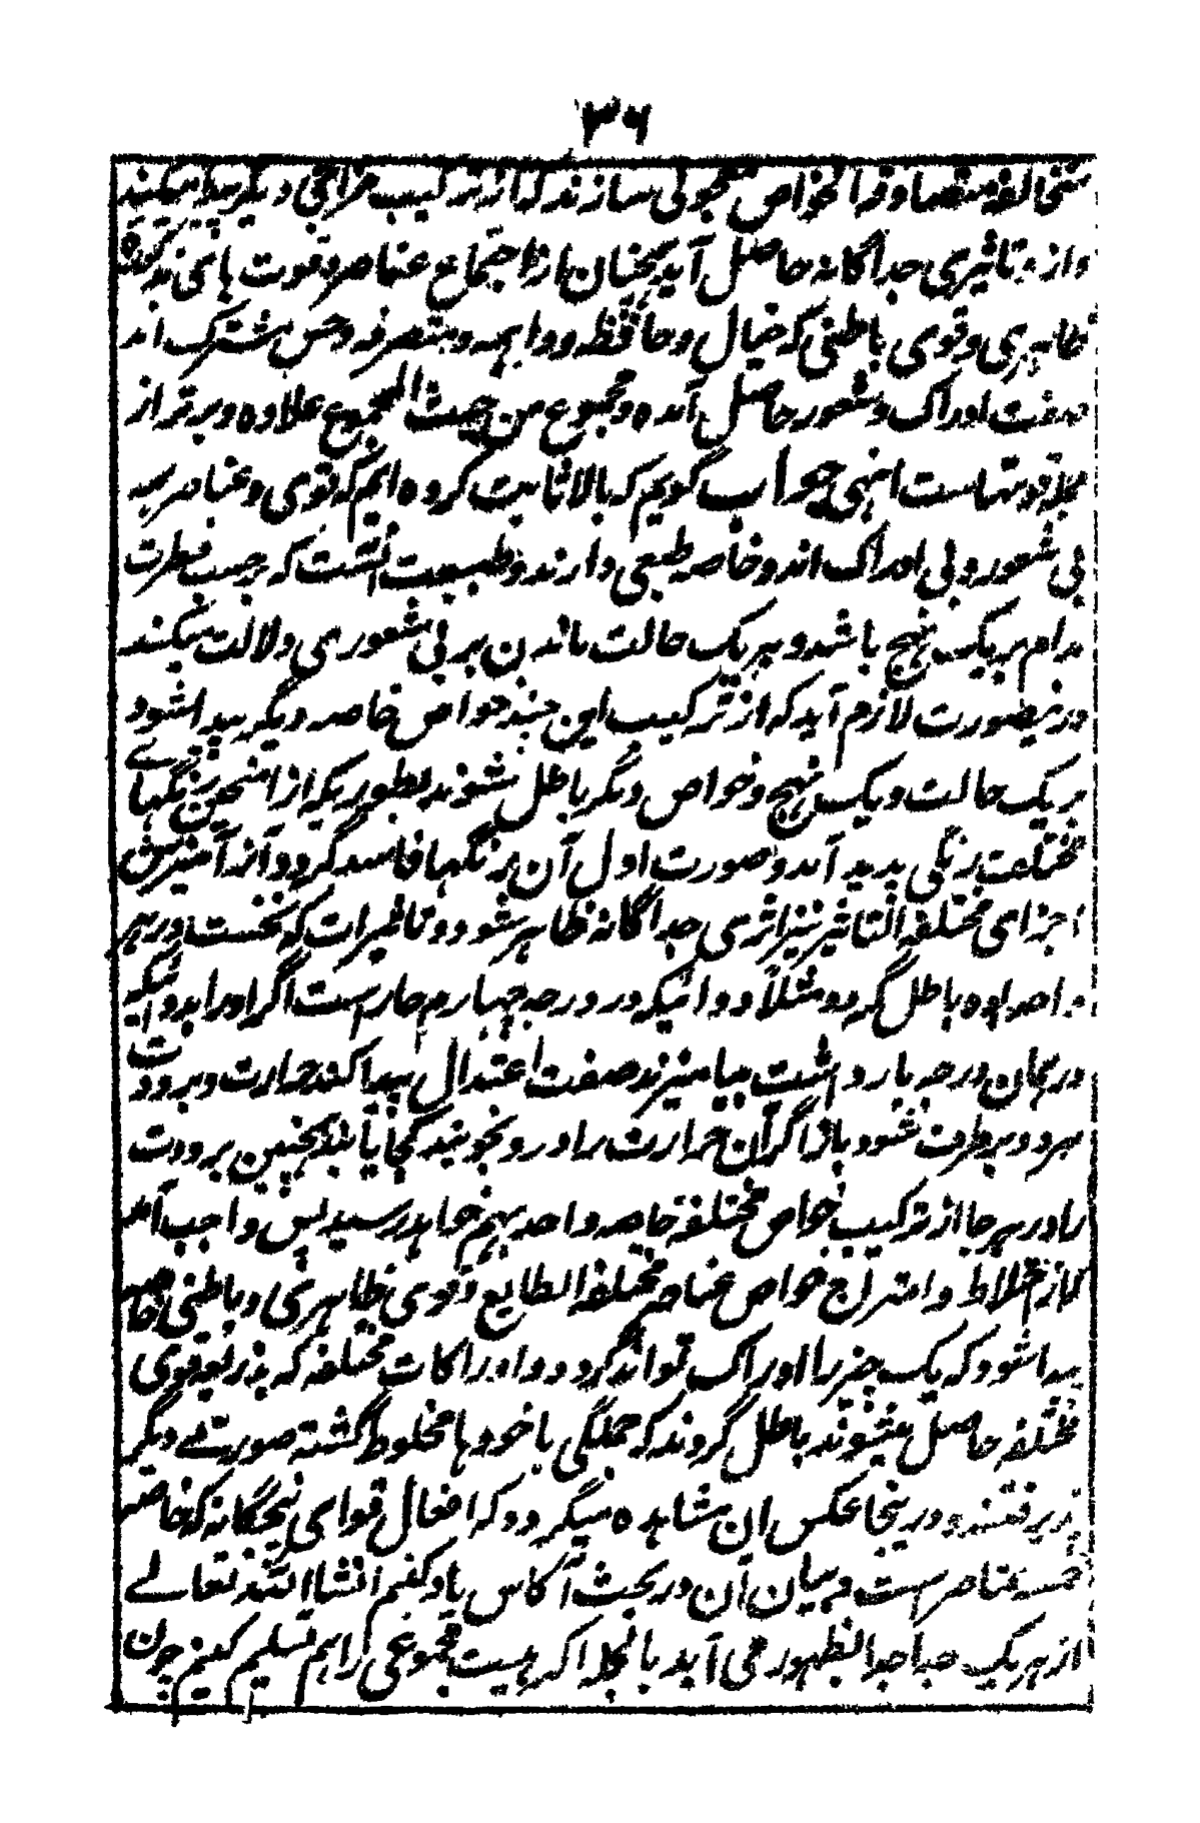 ۳۶
متخالفه متضاد و فرا لخواص معجونی سازند که از ترکیب مزاجی دیگر پیدا میکند
و از و تاثیری جداگانه حاصل آید همچنان از اجتماع عناصر و قوت های مذکوره
ظاهری و قوی باطنی که خیال و حافظه و واهمه و متصرفه و حس مشترک اند
صفت ادراک و شعور حاصل آمده و مجموع من حیث المجموع علاوه و برتر از
جمله قوتهاست انتهی جواب گویم که بالا ثابت کرده ایم که قوی و عناصر همه
بی شعور و بی ادراک اند و خاصه طبعی دارند و طبیعت آنست که بر حسب فطرت
مدام بر یک نهج باشد و بر یک حالت ماندن بر بی شعوری دلالت میکند
درینصورت لازم آید که از ترکیب این چند خواص خاصه دیگر پیدا شود
بر یک حالت و یک نهج و خواص دیگر باطل شوند بطوریکه از امتحین رنگهای
مختلف رنگی پدید آمد و صورت اول آن رنگها فاسد گردد و از آمیزش
اجزای مختلفه التاثیر نیز اثری جداگانه ظاهر شود و تاثیرات که نخست در هر
واحد بوده باطل گردد مثلاً دوائیکه در درجه چهارم حارست اگر او را بدوائیکه
در همان درجه بارد است بیامیزند صفت اعتدال پیدا کند حرارت و برودت
هر دو برطرف شود باز اگر آن حرارت را درو بجویند کجا یابند همچنین برودت
را در هر جا از ترکیب خواص مختلفه خاصه واحد بهم خواهد رسید پس واجب آمد
که از اختلاط و امتزاج خواص عناصر مختلفه الطایع و قوی ظاهری و باطنی خاصه
پیدا شود که یک چیز را ادراک تواند کرد و ادراکات مختلفه که بذریعه قوی
مختلفه حاصل میشوند باطل گردند که جملگی با خودها مخلوط گشته صورت دیگر
پذیرفتند و درینجا عکس این مشاهده میگردد که افعال قوای پنجگانه که خاصه
خمسه عناصر هست و بیان آن در بحث آکاس یاد کنم انشا الله تعالے
از هر یک جدا جدا بظهور می آید بالجمله اگر هیئت مجموعی را هم تسلیم کنیم چون